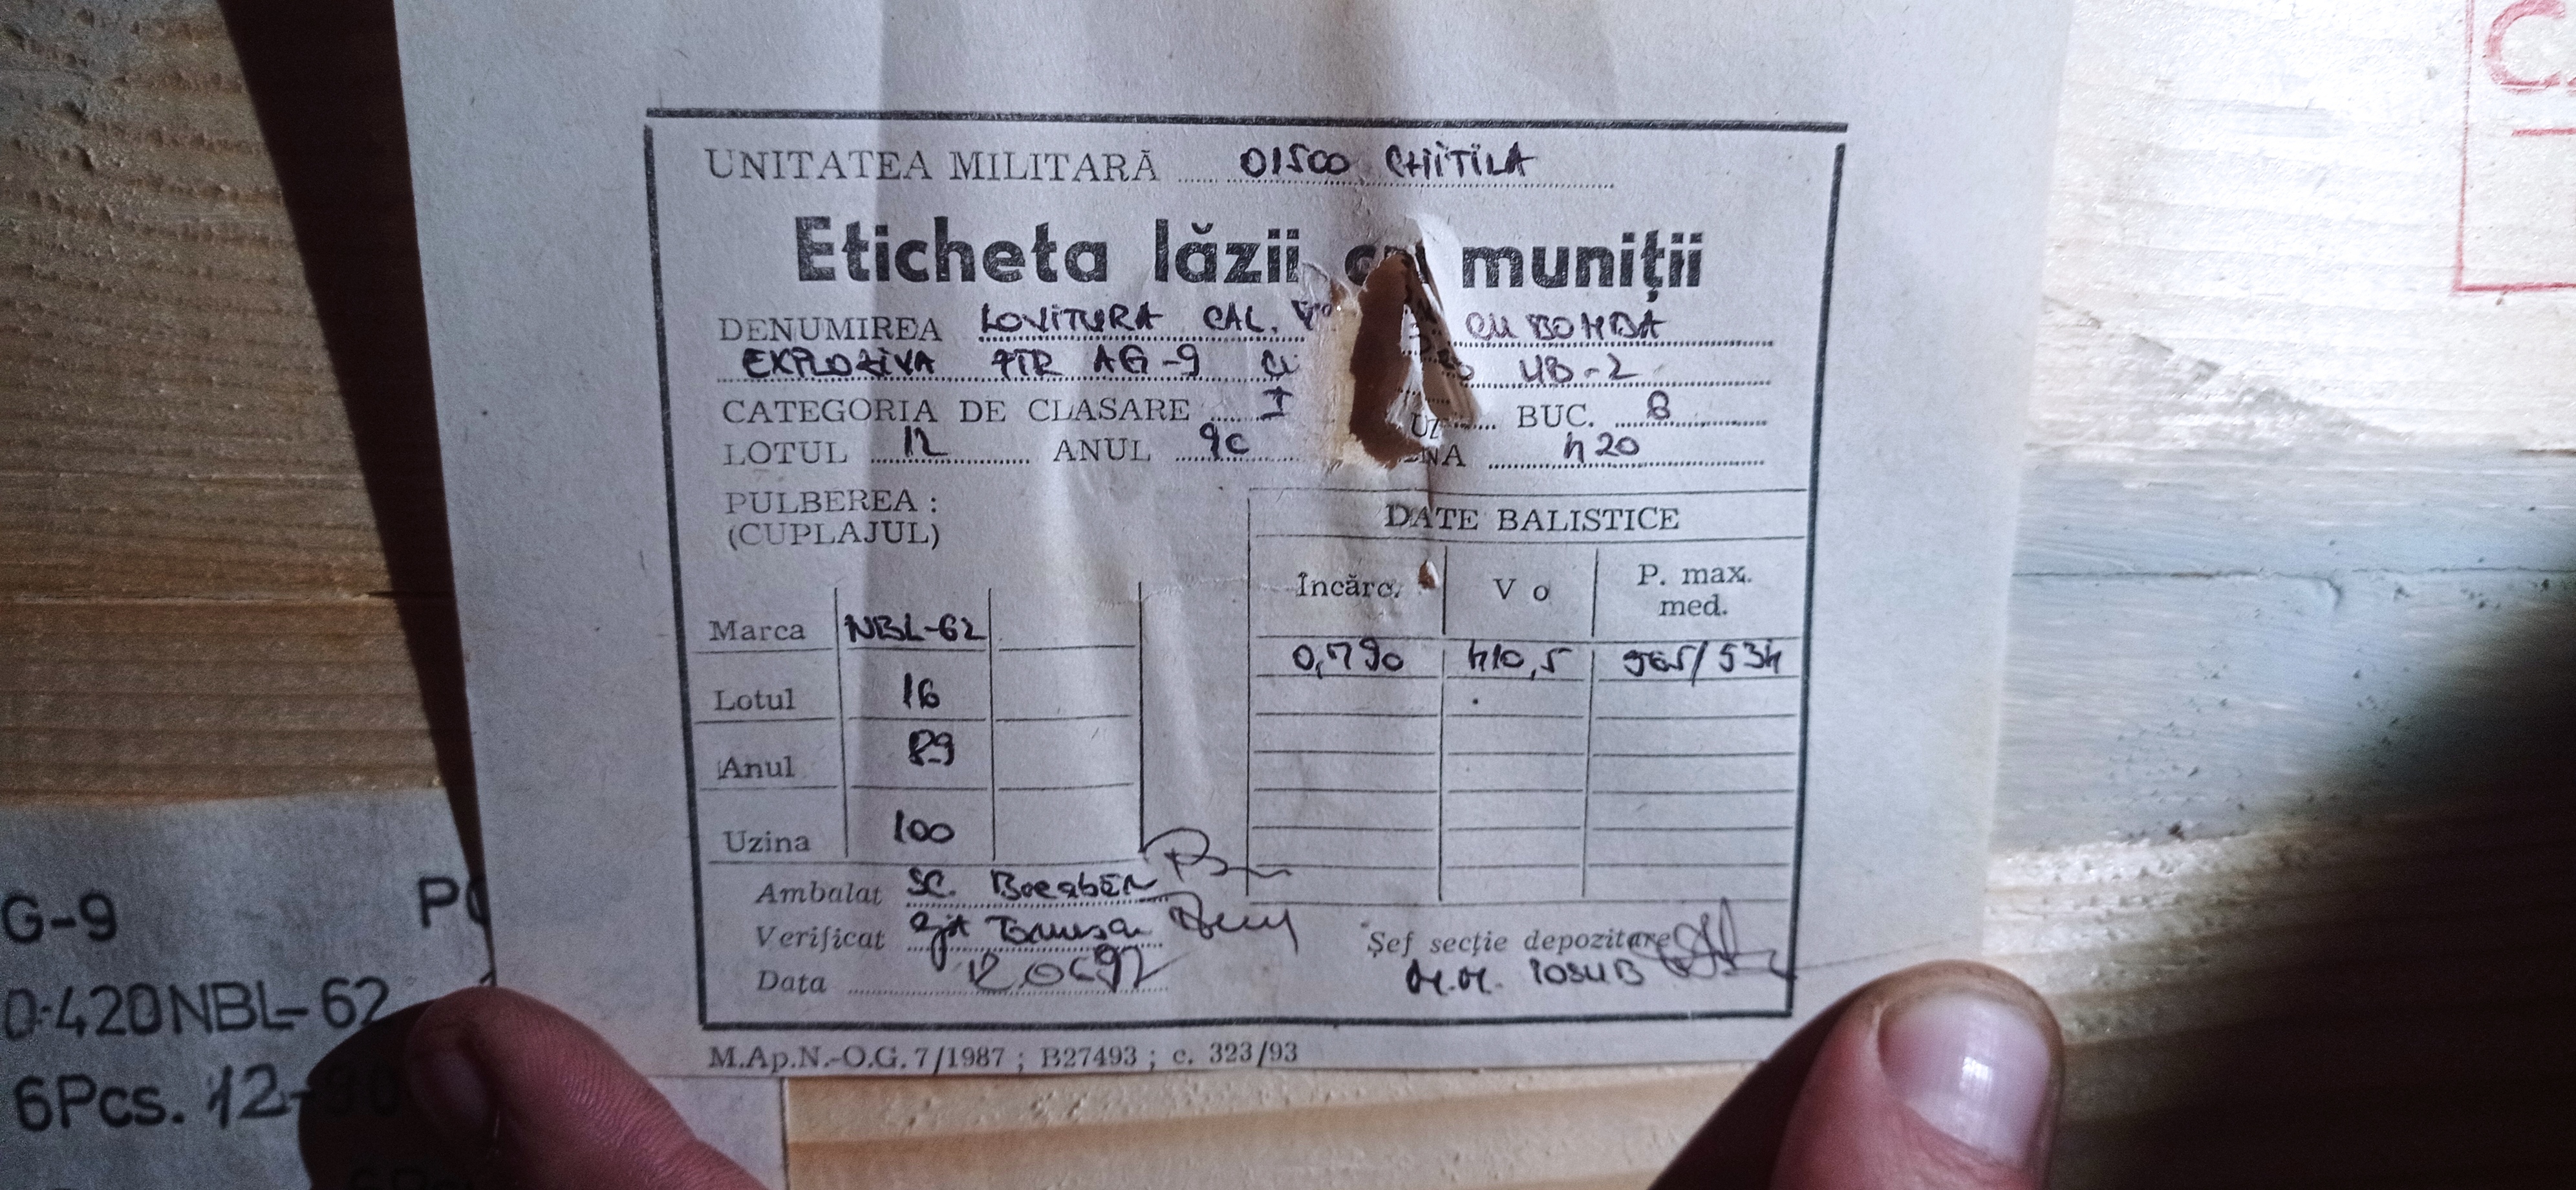 UNITATEA MILITARĂ 01500 CHITILA
Eticheta lăzii cu muniții
DENUMIREA LOVITURA CAL. CU BOMBA
EXPLOZIVA PTR AG-9 CU UB-2
CATEGORIA DE CLASARE I BUC. 6
LOTUL 12 ANUL 90 420
PULBEREA :
(CUPLAJUL)
DATE BALISTICE
Încărc. V o P. max. med.
Marca NBL-62
0,790 410,5 565/534
Lotul 16
Anul 89
Uzina 100
Ambalat SC.
Verificat
Șef secție depozitare
Data
M.M. IOSUB
M.Ap.N.-O.G. 7/1987 ; B27493 ; c. 323/93
G-9
0.420NBL-62
6Pcs. 12-90